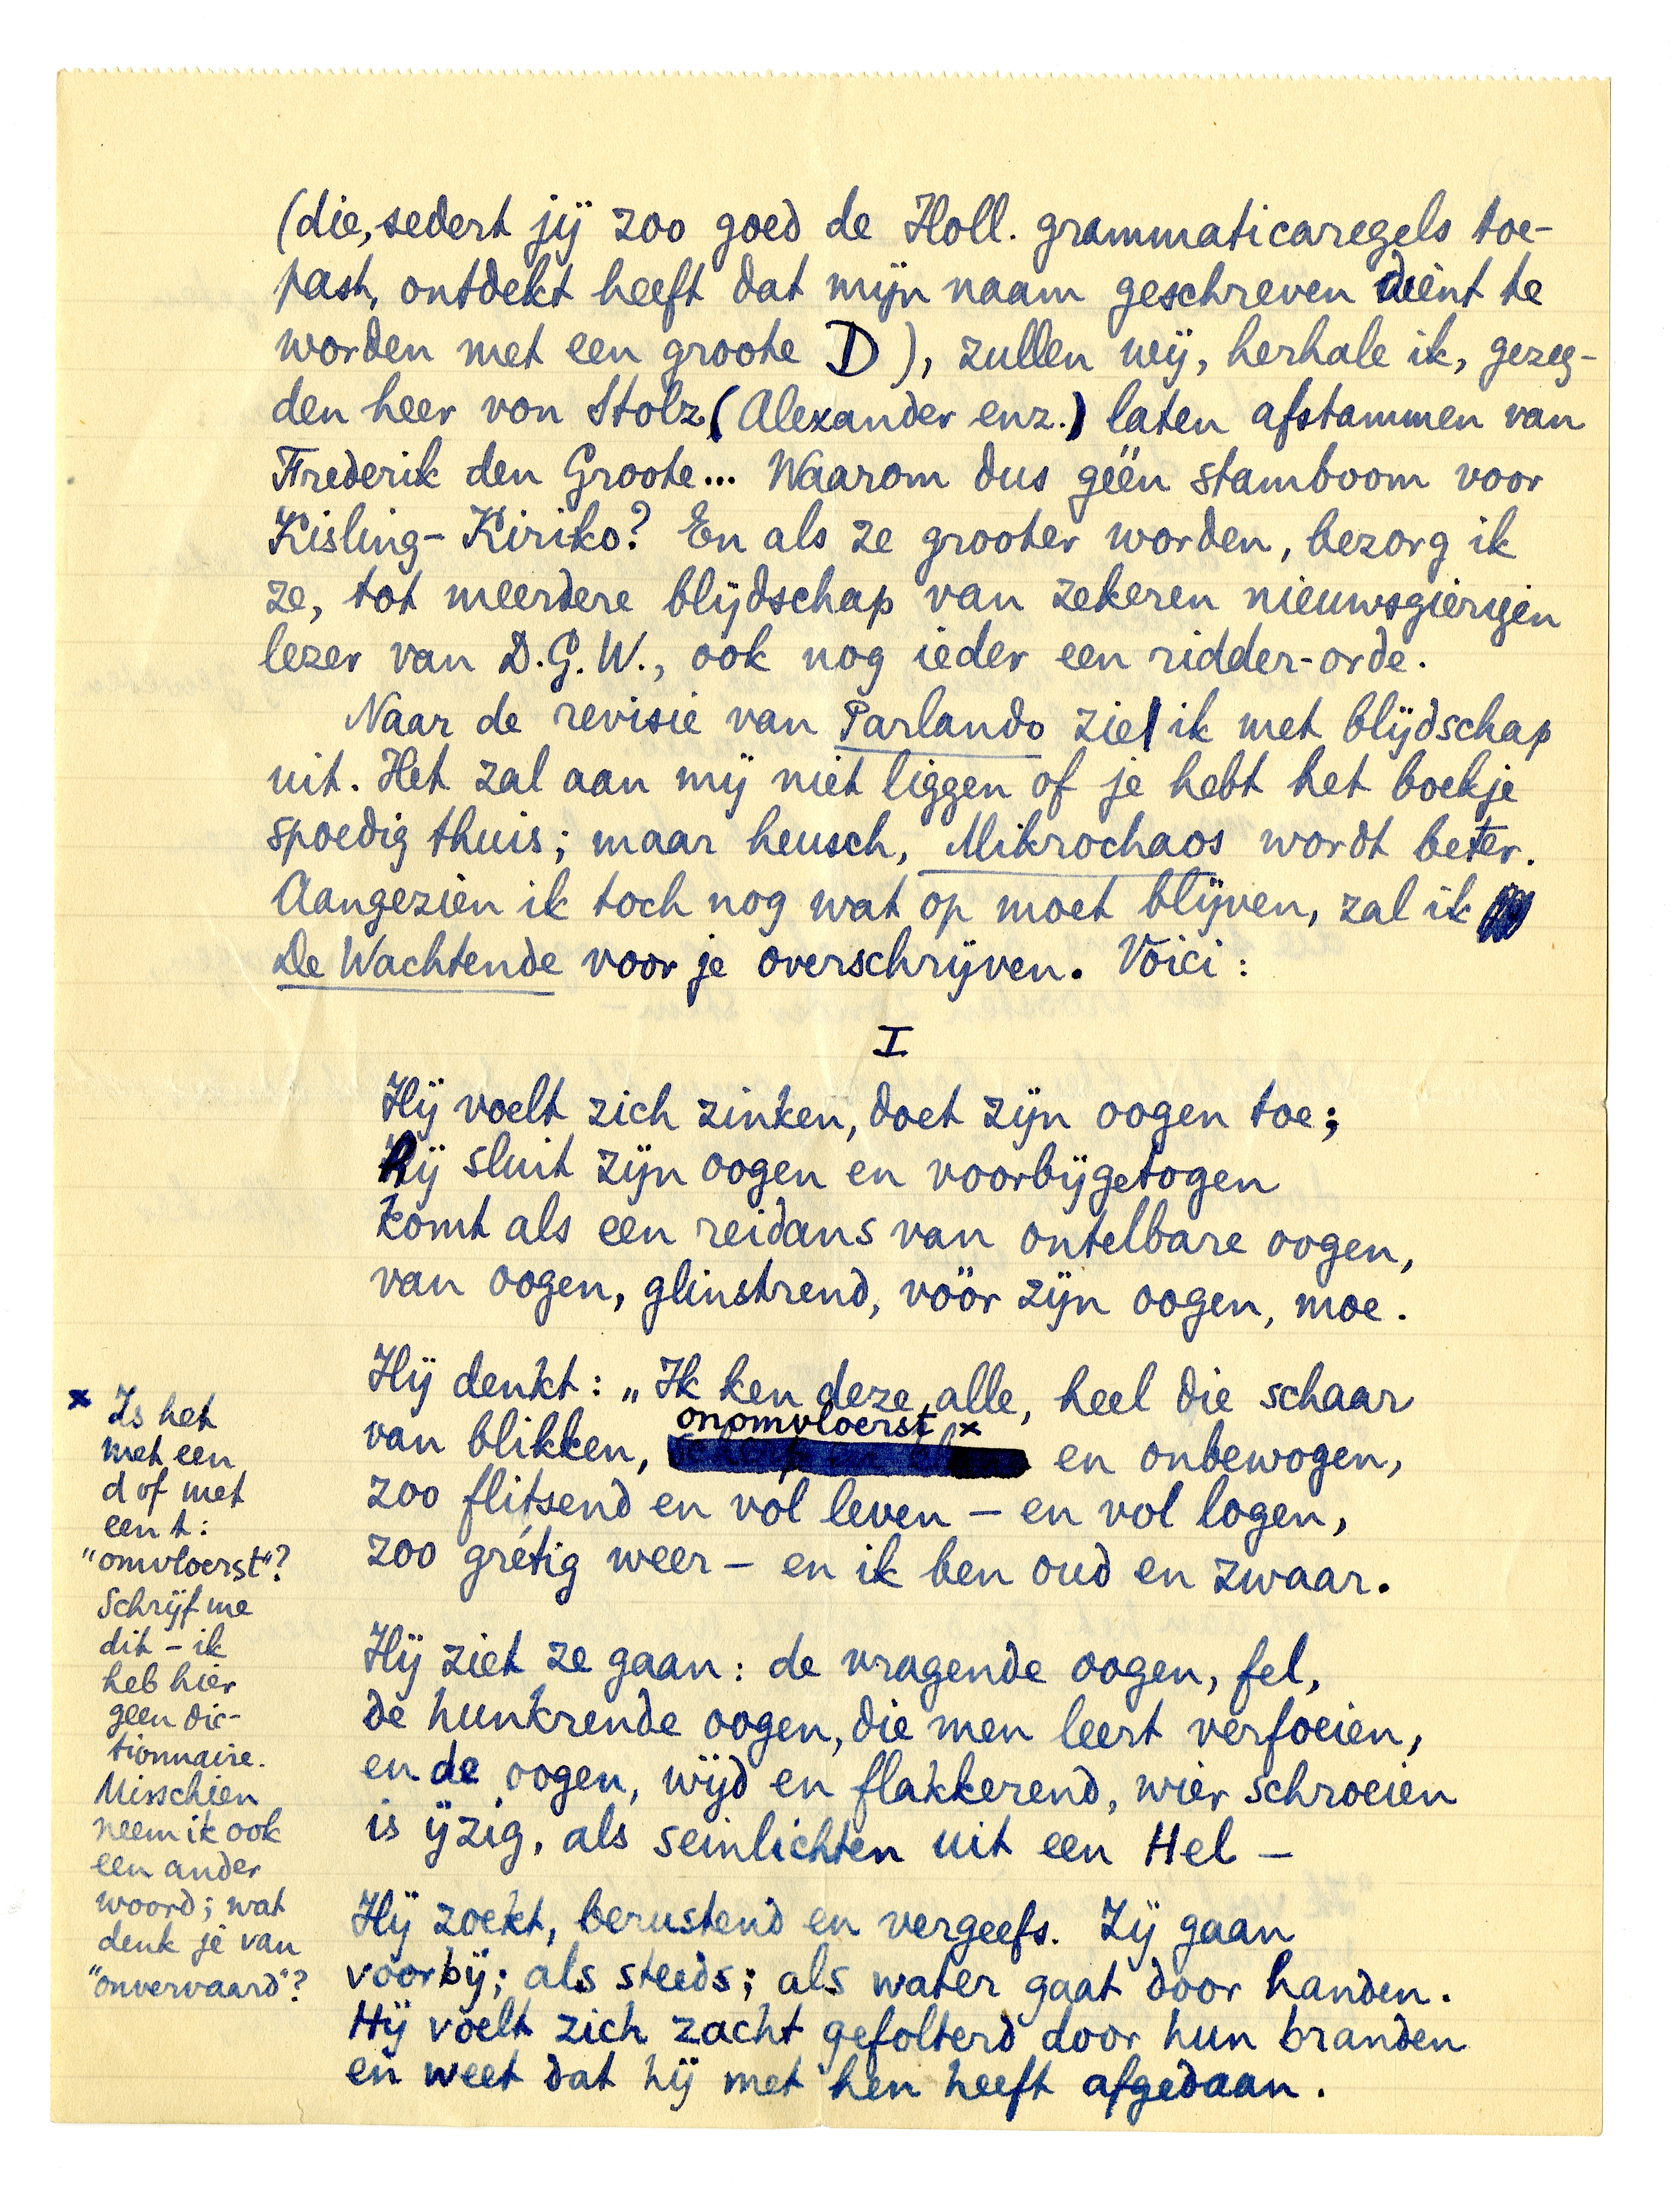 (die, sedert jij zoo goed de Holl. grammaticaregels toe-
past, ontdekt heeft dat mijn naam geschreven dient te
worden met een groote D), zullen wij, herhale ik, gezeg-
den heer von Stolz (Alexander enz.) laten afstammen van
Frederik den Groote... Waarom dus géén stamboom voor
Kisling-Kiriko? En als ze grooter worden, bezorg ik
ze, tot meerdere blijdschap van zekeren nieuwsgierigen
lezer van D.G.W., ook nog ieder een ridder-orde.
Naar de revisie van Parlando zie ik met blijdschap
uit. Het zal aan mij niet liggen of je hebt het boekje
spoedig thuis; maar heusch, Mikrochaos wordt beter.
Aangezien ik toch nog wat op moet blijven, zal ik
De Wachtende voor je overschrijven. Voici:
I
Hij voelt zich zinken, doet zijn oogen toe;
hij sluit zijn oogen en voorbijgetogen
komt als een reidans van ontelbare oogen,
van oogen, glinstrend, vóór zijn oogen, moe.
Hij denkt: „Ik ken deze alle, heel die schaar
van blikken, onomvloerst x en onbewogen,
zoo flitsend en vol leven – en vol logen,
zoo grétig weer – en ik ben oud en zwaar.
Hij ziet ze gaan: de vragende oogen, fel,
de hunkrende oogen, die men leert verfoeien,
en de oogen, wijd en flakkerend, wier schroeien
is ijzig, als seinlichten uit een Hel –
Hij zoekt, berustend en vergeefs. Zij gaan
voorbij; als steeds; als water gaat door handen.
Hij voelt zich zacht gefolterd door hun branden
en weet dat hij met hen heeft afgedaan.
x Is het
met een
d of met
een t:
"omvloerst"?
Schrijf me
dit – ik
heb hier
geen dic-
tionnaire.
Misschien
neem ik ook
een ander
woord; wat
denk je van
"onvervaard"?